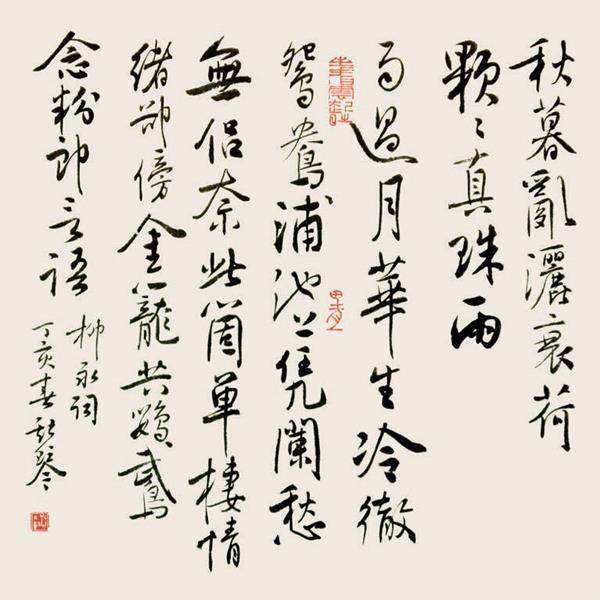 秋暮亂灑衰荷
顆々真珠雨
雨過月華生冷徹
鴛鴦浦池上凭闌愁
無侶奈此箇單棲情
緒卻傍金籠共鸚鵡
念粉郎言語
柳永詞
丁亥春琴